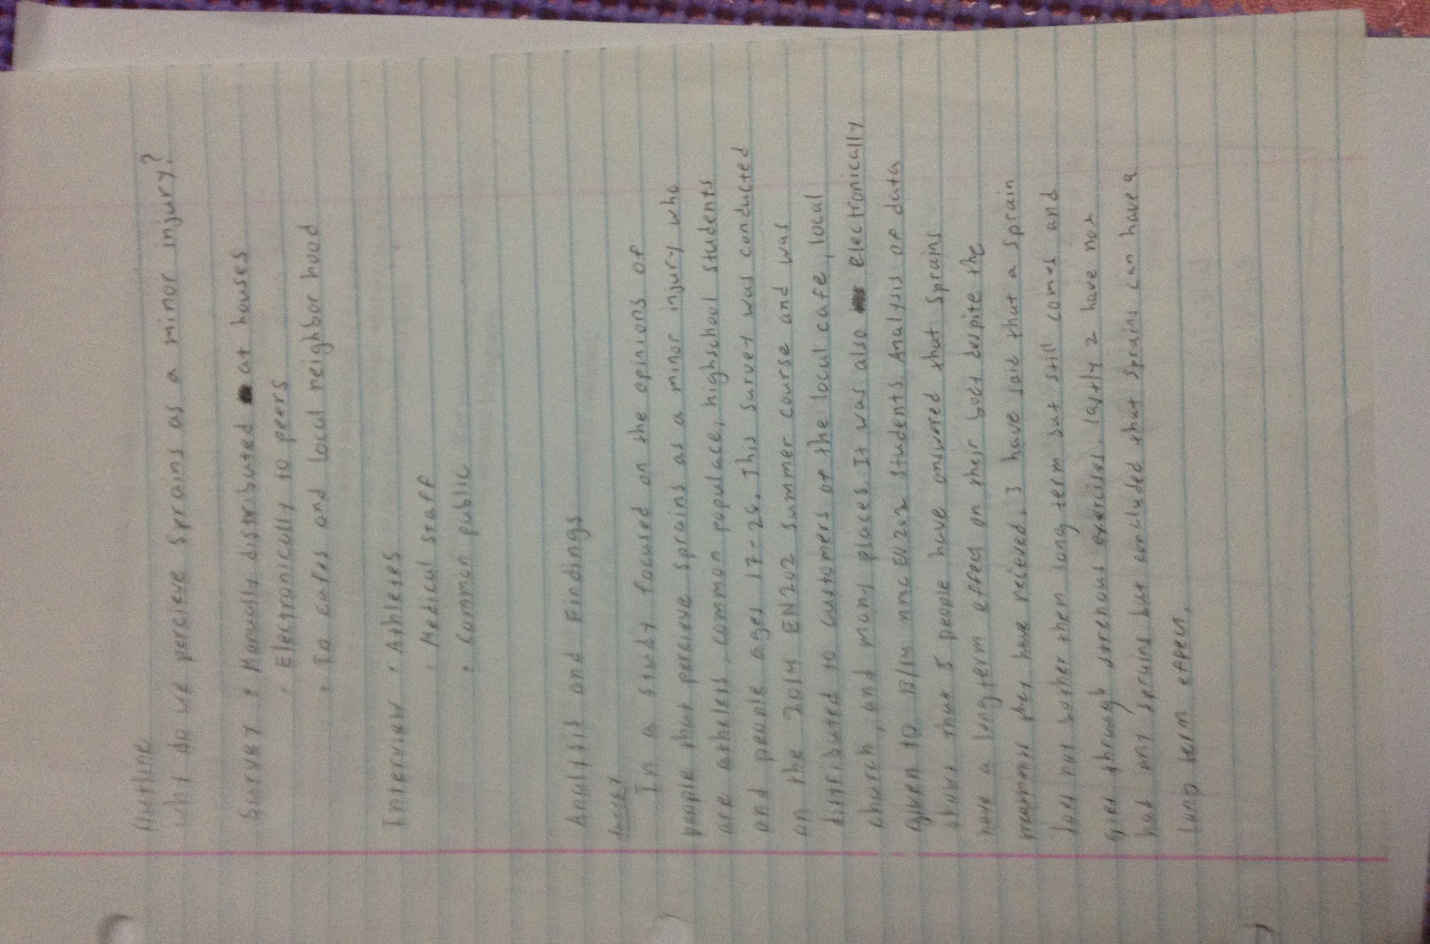 Outline
Why do we percieve Sprains as a minor injury?
Survey • Manually distributed at houses
• Electronically to peers
• To cafes and local neighbor hood
Interview • Athletes
• Medical staff
• Common public
Analysis and Findings
Survey
In a study focused on the opinions of
people that percieve sprains as a minor injury who
are atheletes common populace, highschool students
and people ages 17-26. This survey was conducted
on the 2014 EN202 Summer course and was
distributed to customers of the local cafe, local
church, and many places. It was also electronically
given to 13/14 nmc EN202 students. Analysis of data
shows that 5 people have answered that Sprains
have a long term effect on their body despite the
treatment they have recieved. 3 have said that a sprain
does not bother them long term but still comes and
goes through strenous exercises. lastly 2 have not
had any sprains but concluded that sprains can have a
long term effect.